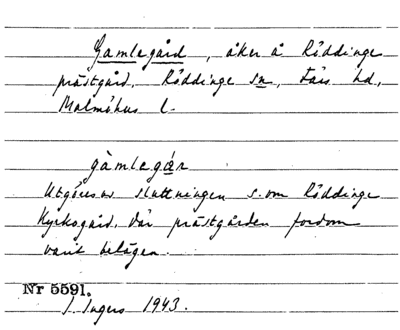 Gamlegård, åker å Röddinge
prästgård, Röddinge sn, Färs hd,
Malmöhus l.
gàmlegár
Utgöres av sluttningen s. om Röddinge
Kyrkogård, där prästgården fordom
varit belägen.
Nr 5591.
I. Ingers 1943.